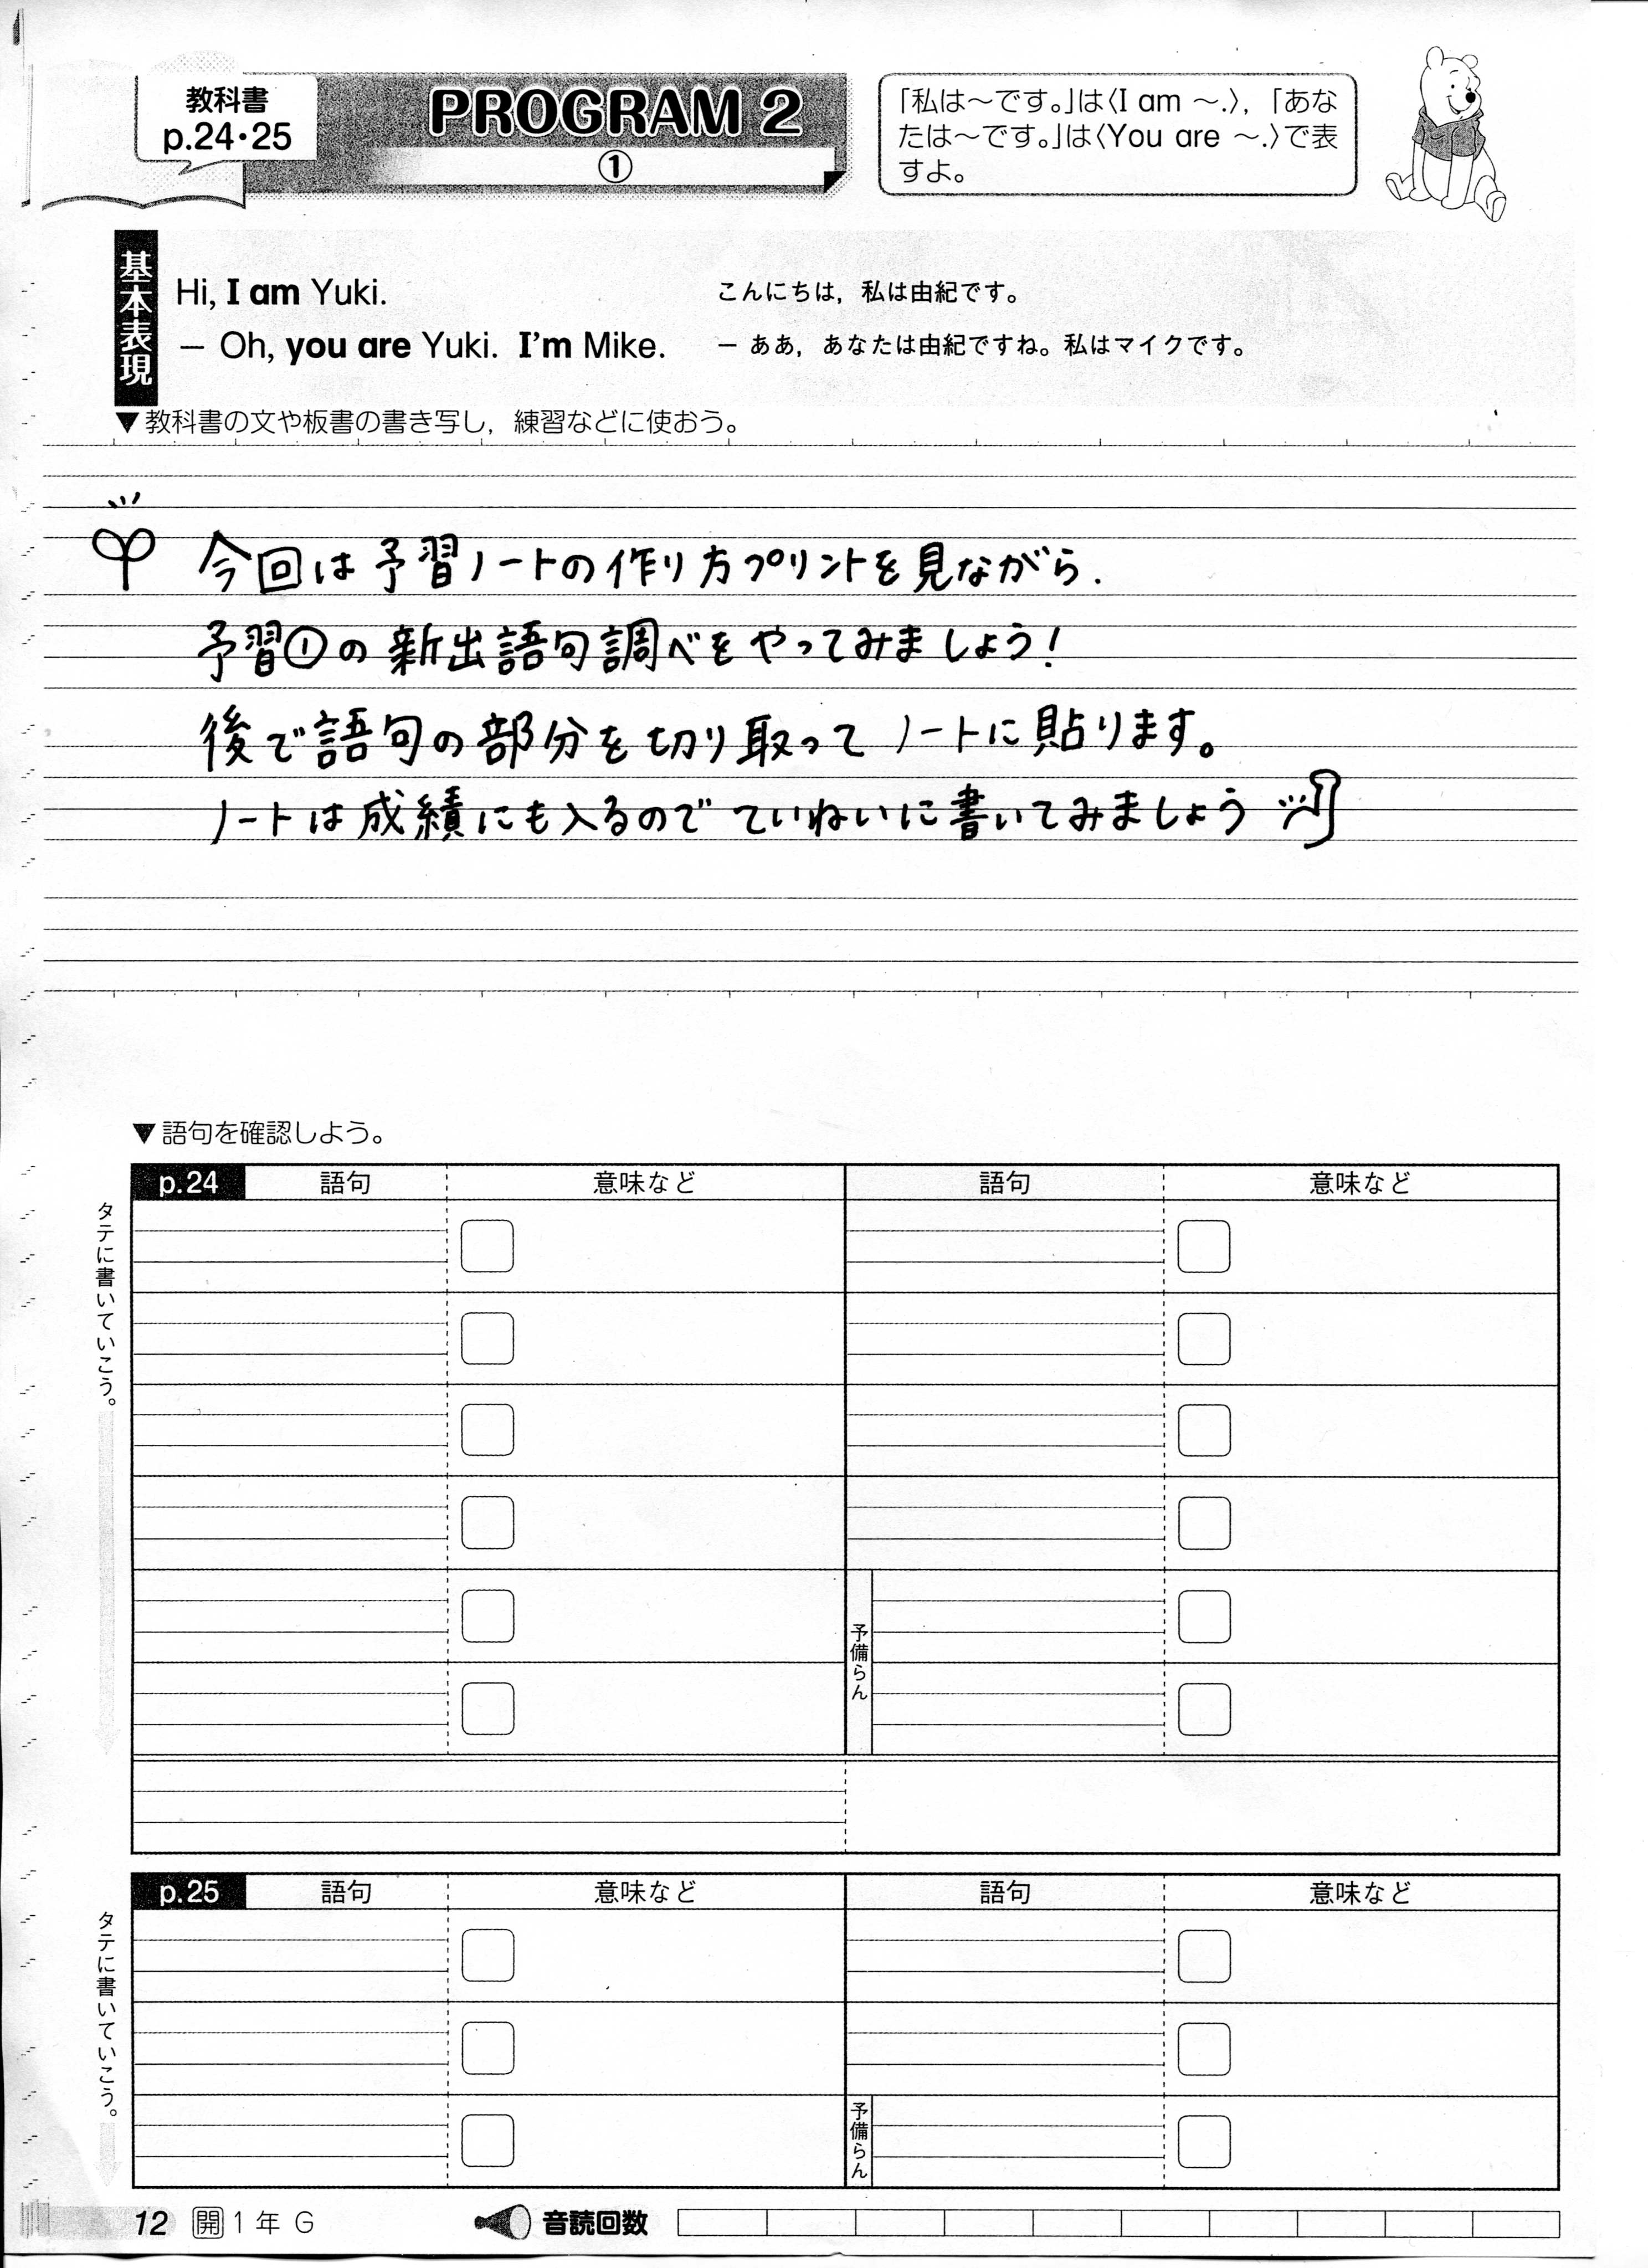 教科書
p.24・25
PROGRAM 2
①
「私は～です。」は〈I am ～.〉,「あな
たは～です。」は〈You are ～.〉で表
すよ。
基本表現
Hi, I am Yuki.
こんにちは，私は由紀です。
— Oh, you are Yuki. I'm Mike.
— ああ，あなたは由紀ですね。私はマイクです。
▼教科書の文や板書の書き写し，練習などに使おう。
今回は予習ノートの作り方プリントを見ながら.
予習①の新出語句調べをやってみましょう!
後で語句の部分を切り取ってノートに貼ります。
ノートは成績にも入るのでていねいに書いてみましょう
▼語句を確認しよう。
p.24 語句 意味など 語句 意味など
タテに書いていこう。
予備らん
p.25 語句 意味など 語句 意味など
タテに書いていこう。
予備らん
12 開1年 G
音読回数